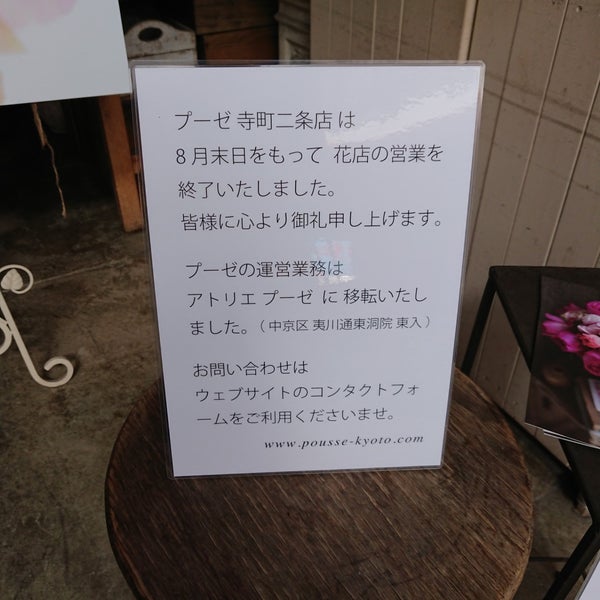 プーゼ 寺町二条店 は
8月末日をもって 花店の営業を
終了いたしました。
皆様に心より御礼申し上げます。
プーゼの運営業務は
アトリエ プーゼ に 移転いたし
ました。( 中京区 夷川通東洞院 東入 )
お問い合わせは
ウェブサイトのコンタクトフォ
ームをご利用くださいませ。
www.pousse-kyoto.com